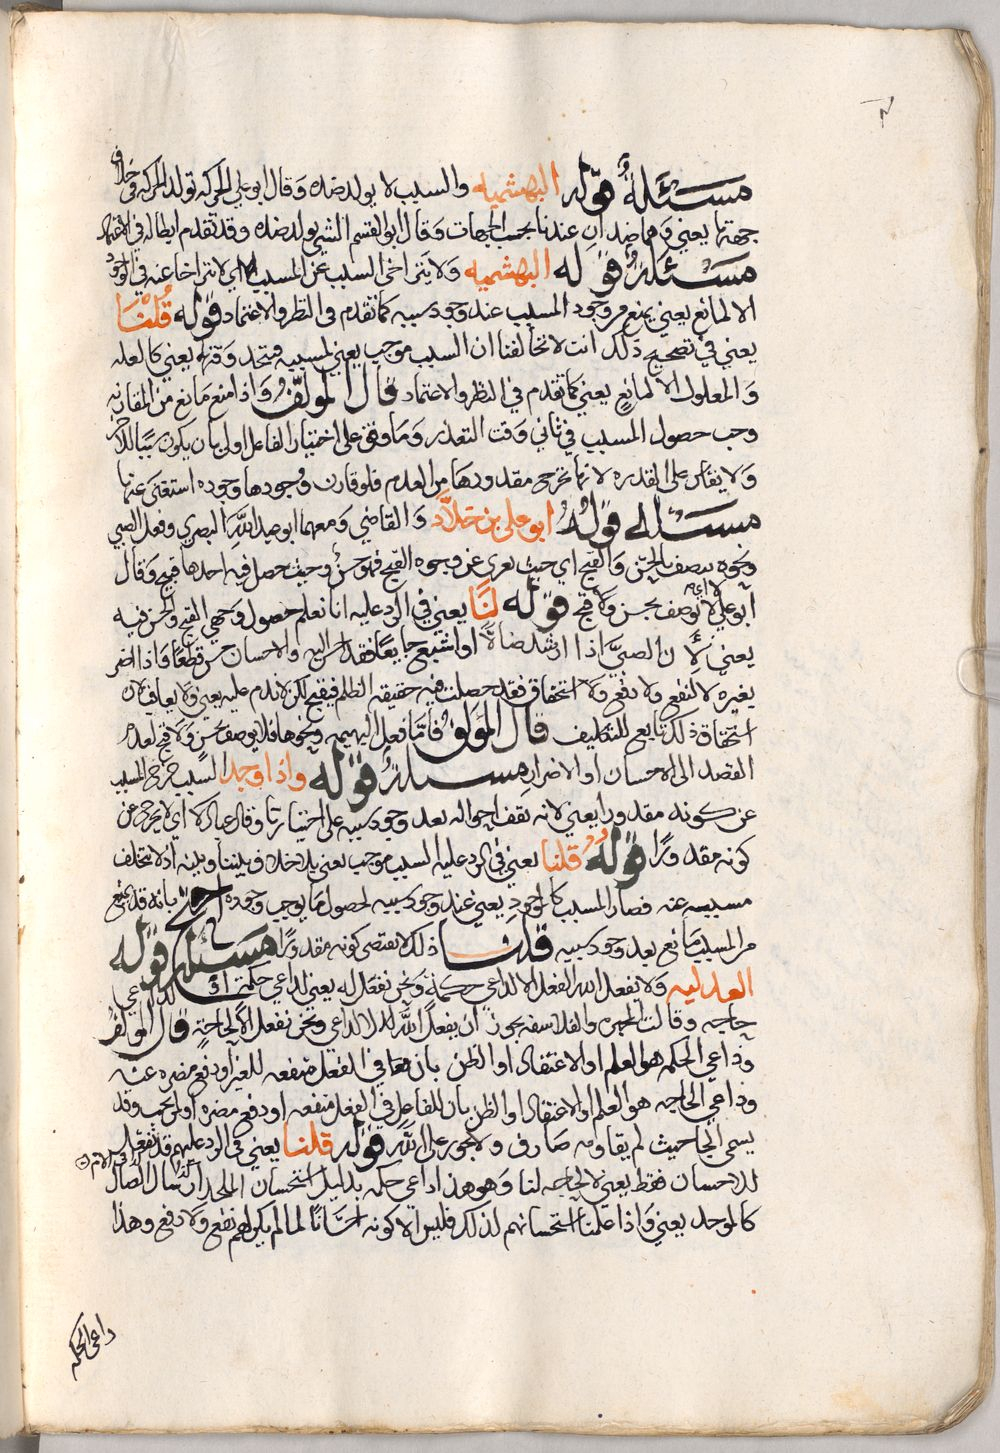 مسئلة قوله البهشميه والسبب لا يولد ضده وقال ابو علي الحركه تولد الحركه في خلاف
جهتها يعني وهما ضدان عندنا بحسب الجهات وقال ابو القسم الشي يولد ضده وقد تقدم ابطاله في الاعتماد
مسئلة قوله البهشميه ولا يتراخى السبب عن المسبب اي لا يتراخا عنه في الوجود
الا لمانع يعني يمنع من وجود المسبب عند وجود سببه كما تقدم في النظر والاعتماد قوله قلنا
يعني في تصحيح ذلك انت لا تخالفنا ان السبب موجب يعني لمسببه فيتحد وقتهما يعني كالعله
والمعلول الا لمانع يعني كما تقدم في النظر والاعتماد قال المولف واذا منع مانع من المقارنه
وجب حصول المسبب في ثاني وقت التعذر وما وقف على اختيار الفاعل اولى بان يكون سببا للاخر
ولا يقاس على القدره لانها تخرج مقدورها من العدم فلو قارن وجودها وجوده استغنى عنها
مسئلة قوله ابو علي بن خلاد والقاضي ومعهما ابو عبد الله البصري وفعل الصبي
ونحوه يتصف بالحسن والقبح اي حيث تعرى عن وجوه القبح فهو حسن وحيث حصل فيه احدها قبيح وقال
ابو علي لا اي لا يوصف بحسن ولا قبح قوله لنا يعني في الرد عليه انا نعلم حصول وجهي القبح والحسن فيه
يعني لأن الصبي اذا ارشد ضالا او اشبع جايعا فقد احسن اليه والاحسان حسن قطعا واذا اضر
بغيره لا لنفع ولا دفع ولا استحقاق فقد حصلت فيه حقيقه الظلم فيقبح لكن لا يذم عليه يعني ولا يعاقب لان
استحقاق ذلك تابع للتكليف قال المولف فاما فعل البهيمه ونحوها فلا يوصف بحسن ولا قبح لعدم
القصد الى الاحسان او الاضرار مسئلة قوله واذا وجد السبب خرج المسبب
عن كونه مقدورا يعني لانه يقف احواله بعد وجود سببه على اختيارنا وقال عباد لا اي لا يخرج عن
كونه مقدورا قوله قلنا يعني في الرد عليه السبب موجب يعني بلا خلاف بيننا وبينه اذ لا يتخلف
مسببه عنه فصار المسبب كالموجود يعني عند وجود سببه لحصول ما يوجب وجوده احتج بانه قد يمنع
من المسبب مانع بعد وجود سببه قلنا ذلك لا يقتضي كونه مقدورا مسئلة قوله
العدليه ولا يفعل الله الفعل الا لداعي حكمة ونحن نفعل له يعني لداعي حكمة او لداعي
حاجه وقالت المجبره والفلاسفه يجوز ان يفعل الله لا لداعي ونحن نفعل لا لحاجة قال المولف
وداعي الحكمه هو العلم او الاعتقاد او الظن بان في الفعل منفعه للغير او دفع مضره عنه
وداعي الحاجه هو العلم او الاعتقاد او الظن بان للفاعل في الفعل منفعه او دفع مضره اولم يحب وقد
يسمى الجا حيث لم يقاومه صارف ولا يجوز على الله قوله قلنا يعني في الرد عليهم قد نفعل
للاحسان فقط يعني لا لحاجه لنا وهو هذا داعي حكمه بدليل استحسان الملحد ارشاد الضال
كالموحد يعني واذا علمنا استحسانهم لذلك فليس الا كونه احسانا لما لم يكن لهم نفع ولا دفع وهذا
داعي الحكمه